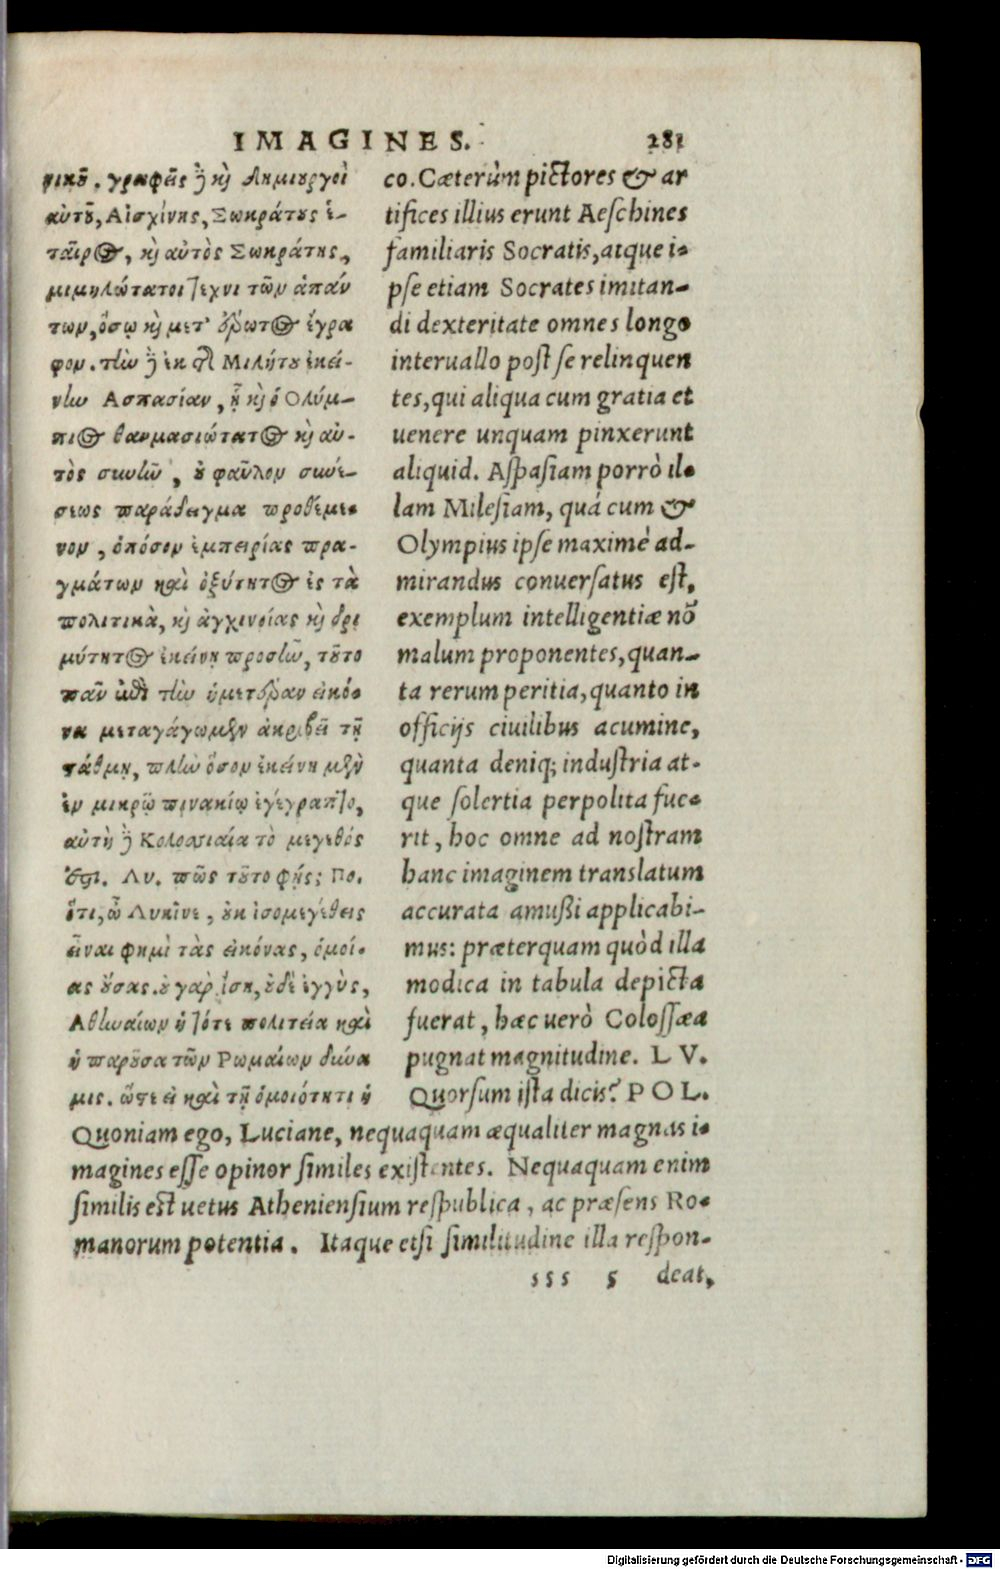 IMAGINES. 281
τικοῦ. γραφεῖς ἢ καὶ δημιουργοὶ
αὐτοῦ, Αἰσχίνης, Σωκράτους ἑ-
ταῖρος, καὶ αὐτὸς Σωκράτης,
μιμηλότατοι τεχνιτῶν ἁπάν
των, ὅσῳ καὶ μετ' ἔρωτος ἔγρα
φον. τὴν δὲ ἐκ τῆς Μιλήτου ἐκεί-
νην Ασπασίαν, ᾗ καὶ ὁ Ολύμ-
πιος θαυμασιώτατος καὶ αὐ-
τὸς συνῆν, οὐ φαῦλον συνέ-
σεως παράδειγμα προθέμε-
νον, ὁπόσον ἐμπειρίας πρα-
γμάτων καὶ ὀξύτητος ἐς τὰ
πολιτικὰ, καὶ ἀγχινοίας καὶ δρι
μύτητος ἐκείνῃ προσῆν, τοῦτο
πᾶν ἐπὶ τὴν ἡμετέραν εἰκό-
να μεταγάγωμεν ἀκριβεῖ τῇ
στάθμῃ, πλὴν ὅσον ἐκείνη μὲν
ἐν μικρῷ πινακίῳ ἐγέγραπτο,
αὐτὴ δὲ Κολοσσιαία τὸ μέγεθός
ἐστι. Λυ. πῶς τοῦτο φῄς; Πο.
ὅτι, ὦ Λυκῖνε, οὐκ ἰσομεγέθεις
εἶναι φημὶ τὰς εἰκόνας, ὁμοί-
ας οὔσας. οὐ γὰρ ἴση, οὐδὲ ἐγγὺς,
Αθηναίων ἡ τότε πολιτεία καὶ
ἡ παροῦσα τῶν Ρωμαίων δύνα
μις. ὥστε εἰ καὶ τῇ ὁμοιότητι ἡ
co. Cæterùm pictores & ar
tifices illius erunt Aeschines
familiaris Socratis, atque i-
pse etiam Socrates imitan-
di dexteritate omnes longo
interuallo post se relinquen
tes, qui aliqua cum gratia et
uenere unquam pinxerunt
aliquid. Aspasiam porrò il-
lam Milesiam, quá cum &
Olympius ipse maximè ad-
mirandus conuersatus est,
exemplum intelligentiæ nõ
malum proponentes, quan-
ta rerum peritia, quanto in
officijs ciuilibus acumine,
quanta deniq; industria at-
que solertia perpolita fue-
rit, hoc omne ad nostram
hanc imaginem translatum
accurata amußi applicabi-
mus: præterquam quòd illa
modica in tabula depicta
fuerat, hæc uerò Colossæa
pugnat magnitudine. L V.
Quorsum ista dicis? P O L.
Quoniam ego, Luciane, nequaquam æqualiter magnas i-
magines esse opinor similes existentes. Nequaquam enim
similis est uetus Atheniensium respublica, ac præsens Ro-
manorum potentia. Itaque etsi similitudine illa respon-
sss 5 deat,
Digitalisierung gefördert durch die Deutsche Forschungsgemeinschaft - DFG